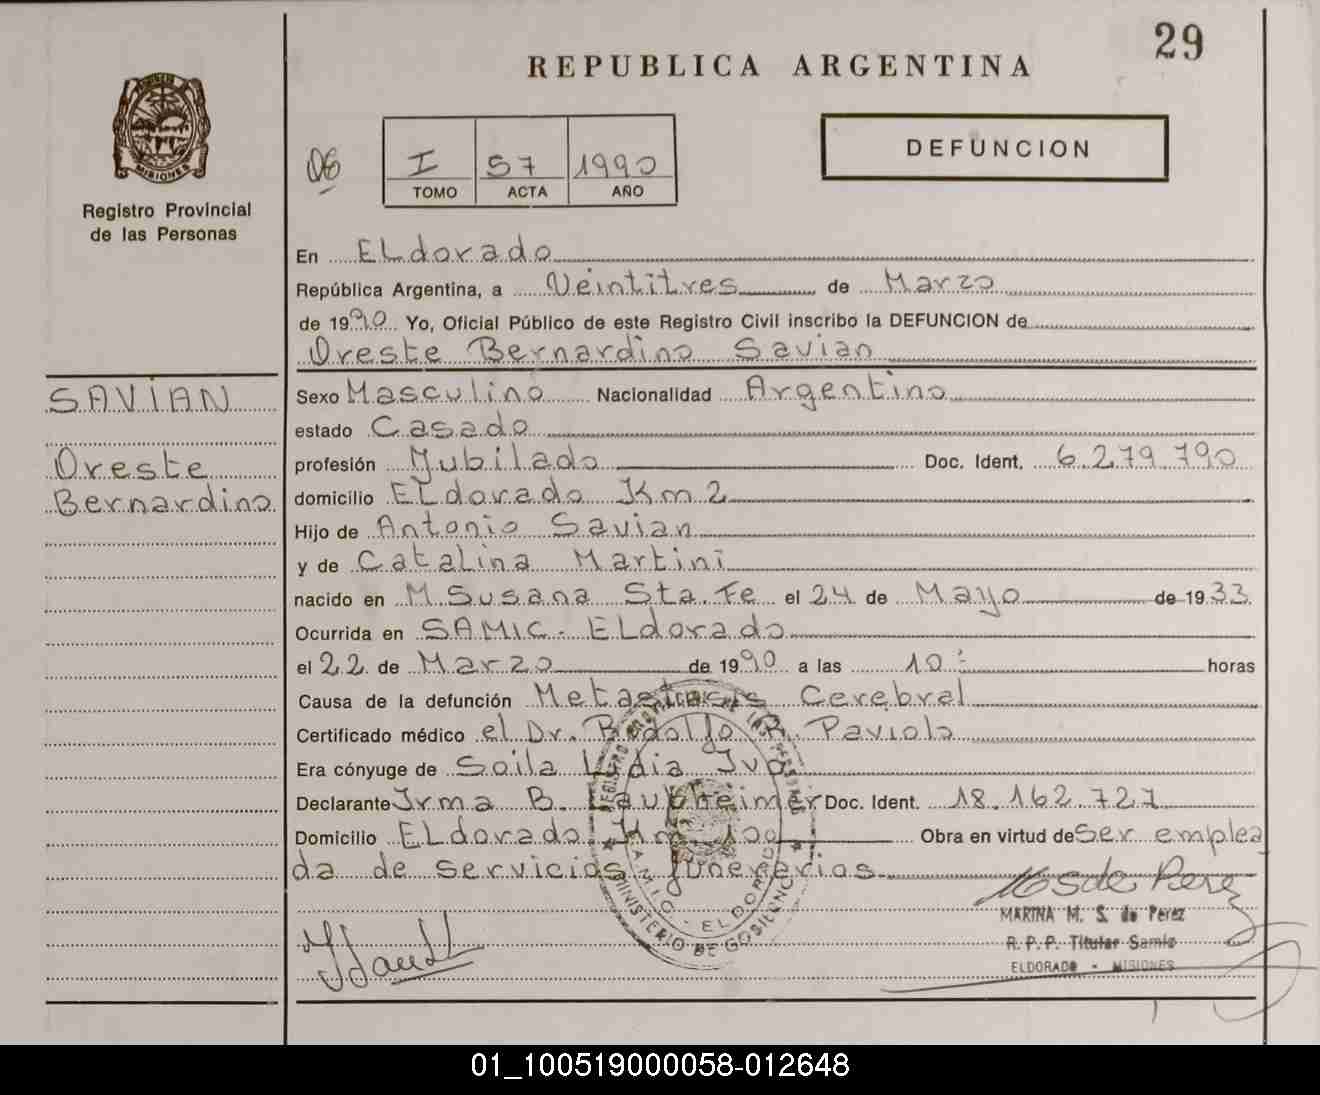 29
REPUBLICA ARGENTINA
MISIONES
Registro Provincial
de las Personas
I 57 1990
TOMO ACTA AÑO
DEFUNCION
En Eldorado
República Argentina, a Veintitres de Marzo
de 1990 Yo, Oficial Público de este Registro Civil inscribo la DEFUNCION de
Oreste Bernardino Savian
SAVIAN
Oreste
Bernardino
Sexo Masculino Nacionalidad Argentino
estado Casado
profesión Jubilado Doc. Ident. 6.279.790
domicilio Eldorado Km 2
Hijo de Antonio Savian
y de Catalina Martini
nacido en M. Susana Sta. Fe el 24 de Mayo de 1933
Ocurrida en SAMIC. Eldorado
el 22 de Marzo de 1990 a las 10: horas
Causa de la defunción Metastasis Cerebral
Certificado médico el Dr. R. Paviolo
Era cónyuge de Soila Lidia
Declarante Irma B. Laubheimer Doc. Ident. 18.162.727
Domicilio Eldorado Km Obra en virtud de Ser emplea
da de servicios funerarios
MARTNA M. S. de Perez
R. P. P. Titular Samic
ELDORADO - MISIONES
MINISTERIO DE GOB
ELDORADO
01_100519000058-012648